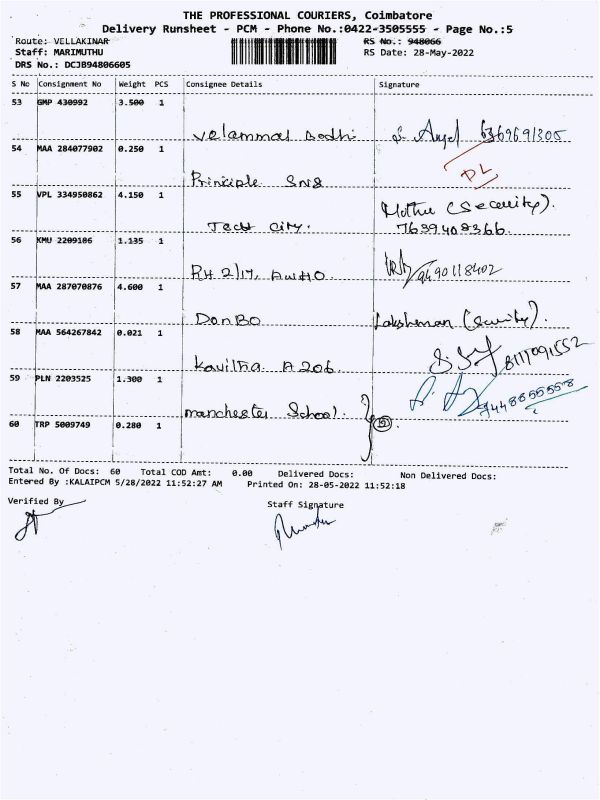 THE PROFESSIONAL COURIERS, Coimbatore
Delivery Runsheet - PCM - Phone No.:0422-3505555 - Page No.:5
Route: VELLAKINAR
RS No.: 948066
Staff: MARIMUTHU
RS Date: 28-May-2022
DRS No.: DCJB94806605
S No Consignment No Weight PCS Consignee Details Signature
53 GMP 430992 3.500 1
Velammal Bodhi S. Angel 6369691305
54 MAA 284077902 0.250 1
DL
Principle SNS
55 VPL 334950862 4.150 1
Muthu (Security).
Tech City. 7639408366.
56 KMU 2209186 1.135 1
RH 2/17, AWHO 9490118402
57 MAA 287070876 4.600 1
DonBo Lakshman (Security).
58 MAA 564267842 0.021 1
Kavitha A206. 8111091552
59 PLN 2203525 1.300 1
manchester School. 9448855558
60 TRP 5009749 0.280 1
Total No. Of Docs: 60 Total COD Amt: 0.00 Delivered Docs: Non Delivered Docs:
Entered By :KALAIPCM 5/28/2022 11:52:27 AM Printed On: 28-05-2022 11:52:18
Verified By
Staff Signature